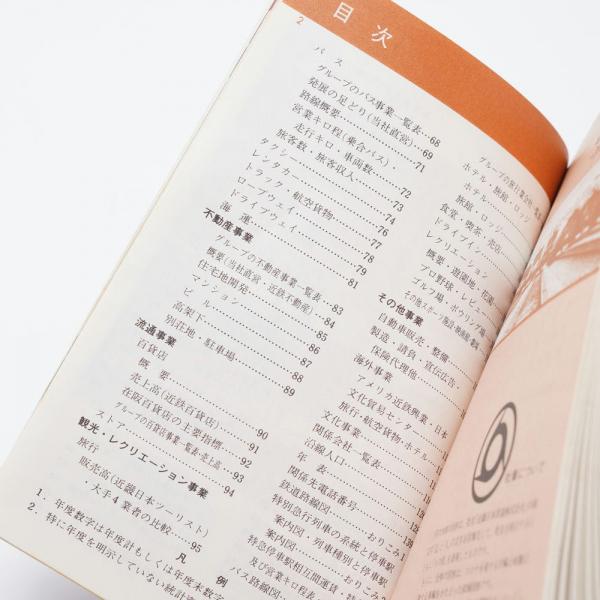 2
目次
バス
グループのバス事業一覧表……68
発展の足どり(当社直営)……69
路線概要……71
営業キロ程(乗合バス)
走行キロ・車両数……72
旅客数・旅客収入……73
タクシー……74
レンタカー……76
トラック・航空貨物……77
ロープウェイ……78
ドライブウェイ……79
海運……81
不動産事業
グループの不動産事業一覧表……83
概要(当社直営・近鉄不動産)……84
住宅地開発……85
マンション……86
ビル……87
高架下……88
別荘地・駐車場……89
流通事業
百貨店
概要……90
売上高(近鉄百貨店)……91
在阪百貨店の主要指標……92
グループの百貨店事業一覧表・売上高……93
ストア……94
観光・レクリエーション事業
旅行
販売高(近畿日本ツーリスト)
・大手4業者の比較……95
凡例
1.年度数字は年度計もしくは年度末数字
2.特に年度を明示していない統計
グループの旅行業会社一覧
ホテル・旅館・ロッジ
ホテル
旅館・ロッジ
食堂・喫茶・売店
ドライブイン
レクリエーション
概要・遊園地・花園
プロ野球・レビュー
ゴルフ場・ボウリング場
その他事業
自動車販売・整備
製造・請負・宣伝広告
保険代理他
海外事業
アメリカ近鉄興業・日本
文化貿易センター
旅行・航空貨物・ホテル
文化事業
関係会社一覧表
沿線人口
年表
関係先電話番号
鉄道路線図……おりこみ
特別急行列車の系統と停車駅
案内図……おりこみ
案内図・列車種別と停車駅
特急停車駅相互間運賃・特
及び営業キロ程表……おりこ
バス路線図
社章について